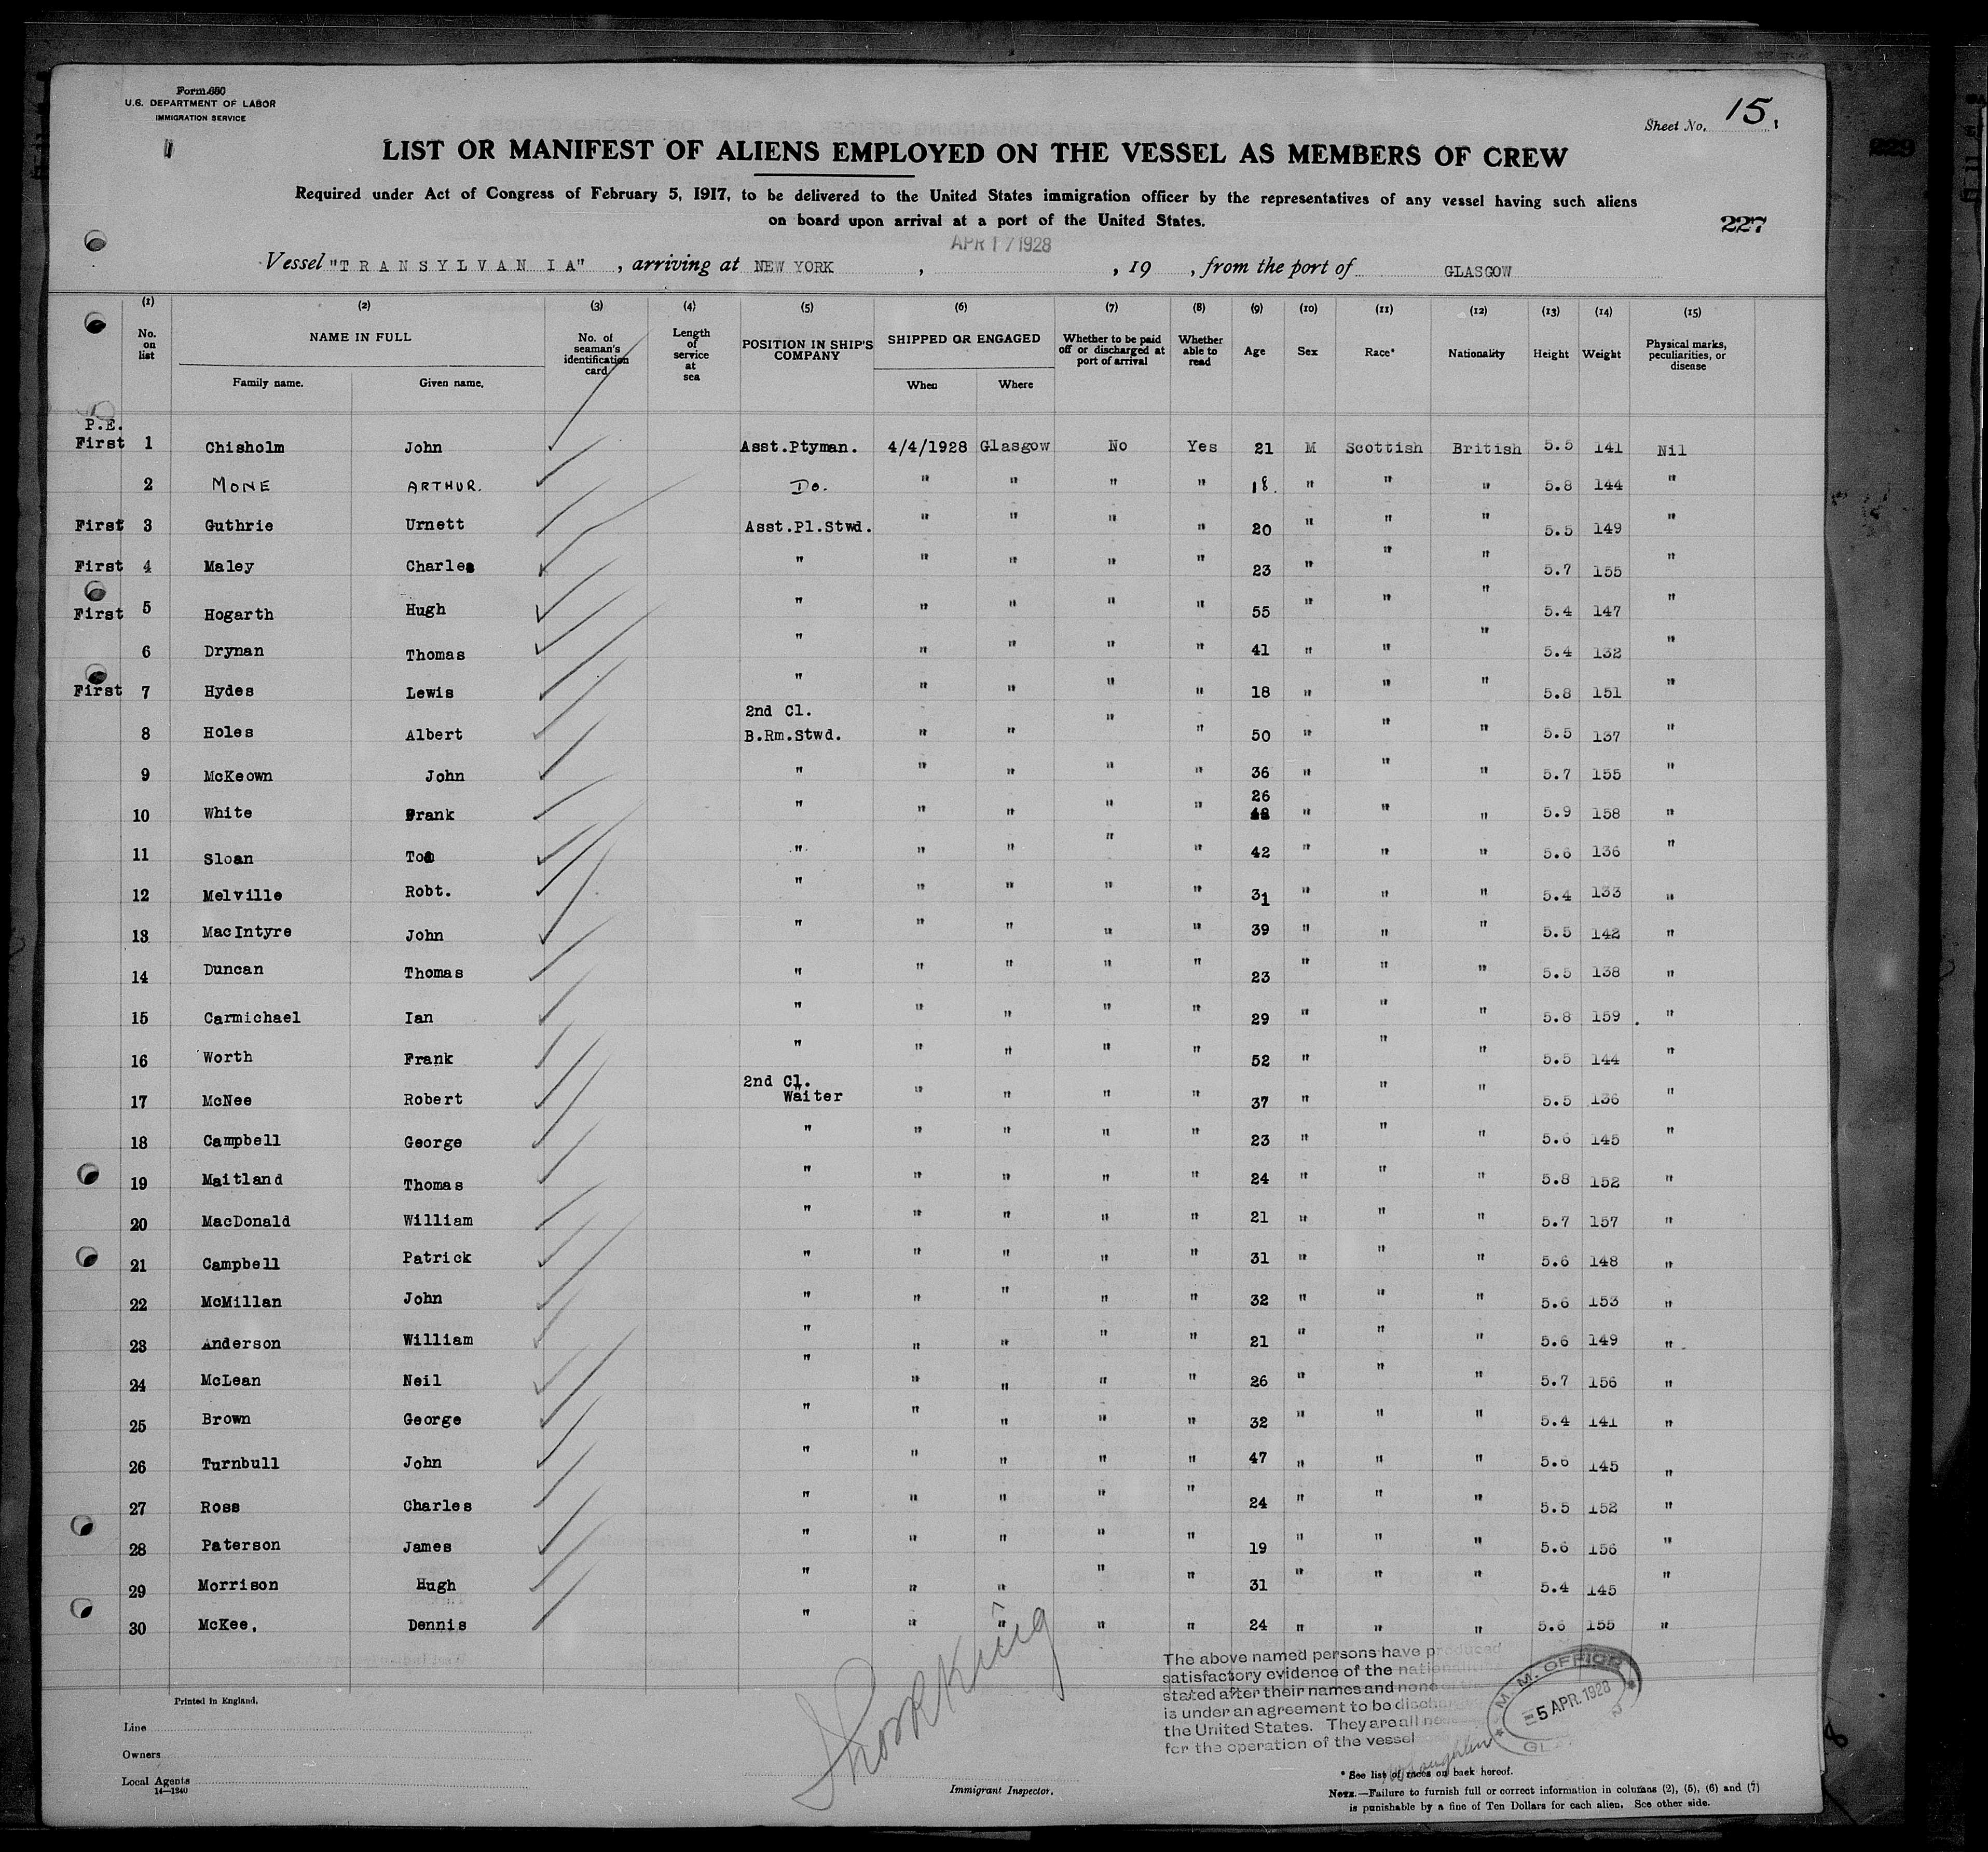 Form 680
U.S. DEPARTMENT OF LABOR
IMMIGRATION SERVICE
Sheet No. 15.
LIST OR MANIFEST OF ALIENS EMPLOYED ON THE VESSEL AS MEMBERS OF CREW
Required under Act of Congress of February 5, 1917, to be delivered to the United States immigration officer by the representatives of any vessel having such aliens
on board upon arrival at a port of the United States.
227
APR 17 1928
Vessel "TRANSYLVANIA", arriving at NEW YORK, , 19 , from the port of GLASGOW
(1) (2) (3) (4) (5) (6) (7) (8) (9) (10) (11) (12) (13) (14) (15)
No. on list NAME IN FULL Family name. Given name. No. of seaman's identification card Length of service at sea POSITION IN SHIP'S COMPANY SHIPPED OR ENGAGED When Where Whether to be paid off or discharged at port of arrival Whether able to read Age Sex Race* Nationality Height Weight Physical marks, peculiarities, or disease
P.E.
First 1 Chisholm John Asst.Ptyman. 4/4/1928 Glasgow No Yes 21 M Scottish British 5.5 141 Nil
2 MONE ARTHUR. Do. " " " " 18. " " " 5.8 144 "
First 3 Guthrie Urnett Asst.Pl.Stwd. " " " " 20 " " " 5.5 149 "
First 4 Maley Charles " " " " " 23 " " " 5.7 155 "
First 5 Hogarth Hugh " " " " " 55 " " " 5.4 147 "
6 Drynan Thomas " " " " " 41 " " " 5.4 132 "
First 7 Hydes Lewis " " " " " 18 " " " 5.8 151 "
2nd Cl.
8 Holes Albert B.Rm.Stwd. " " " " 50 " " " 5.5 137 "
9 McKeown John " " " " " 36 " " " 5.7 155 "
26
10 White Frank " " " " " " " " 5.9 158 "
11 Sloan Tom " " " " " 42 " " " 5.6 136 "
12 Melville Robt. " " " " " 31 " " " 5.4 133 "
13 MacIntyre John " " " " " 39 " " " 5.5 142 "
14 Duncan Thomas " " " " " 23 " " " 5.5 138 "
15 Carmichael Ian " " " " " 29 " " " 5.8 159 "
16 Worth Frank " " " " " 52 " " " 5.5 144 "
2nd Cl.
17 McNee Robert Waiter " " " " 37 " " " 5.5 136 "
18 Campbell George " " " " " 23 " " " 5.6 145 "
19 Maitland Thomas " " " " " 24 " " " 5.8 152 "
20 MacDonald William " " " " " 21 " " " 5.7 157 "
21 Campbell Patrick " " " " " 31 " " " 5.6 148 "
22 McMillan John " " " " " 32 " " " 5.6 153 "
23 Anderson William " " " " " 21 " " " 5.6 149 "
24 McLean Neil " " " " " 26 " " " 5.7 156 "
25 Brown George " " " " " 32 " " " 5.4 141 "
26 Turnbull John " " " " " 47 " " " 5.6 145 "
27 Ross Charles " " " " " 24 " " " 5.5 152 "
28 Paterson James " " " " " 19 " " " 5.6 156 "
29 Morrison Hugh " " " " " 31 " " " 5.4 145 "
30 McKee, Dennis " " " " " 24 " " " 5.6 155 "
The above named persons have produced
satisfactory evidence of the
stated after their names and none
is under an agreement to be
the United States. They are all
for the operation of the vessel
M. M. OFFICE
5 APR. 1928
Printed in England.
Line
Owners
Local Agents
14—1240
Immigrant Inspector.
* See list of races on back hereof.
NOTE.—Failure to furnish full or correct information in columns (2), (5), (6) and (7)
is punishable by a fine of Ten Dollars for each alien. See other side.